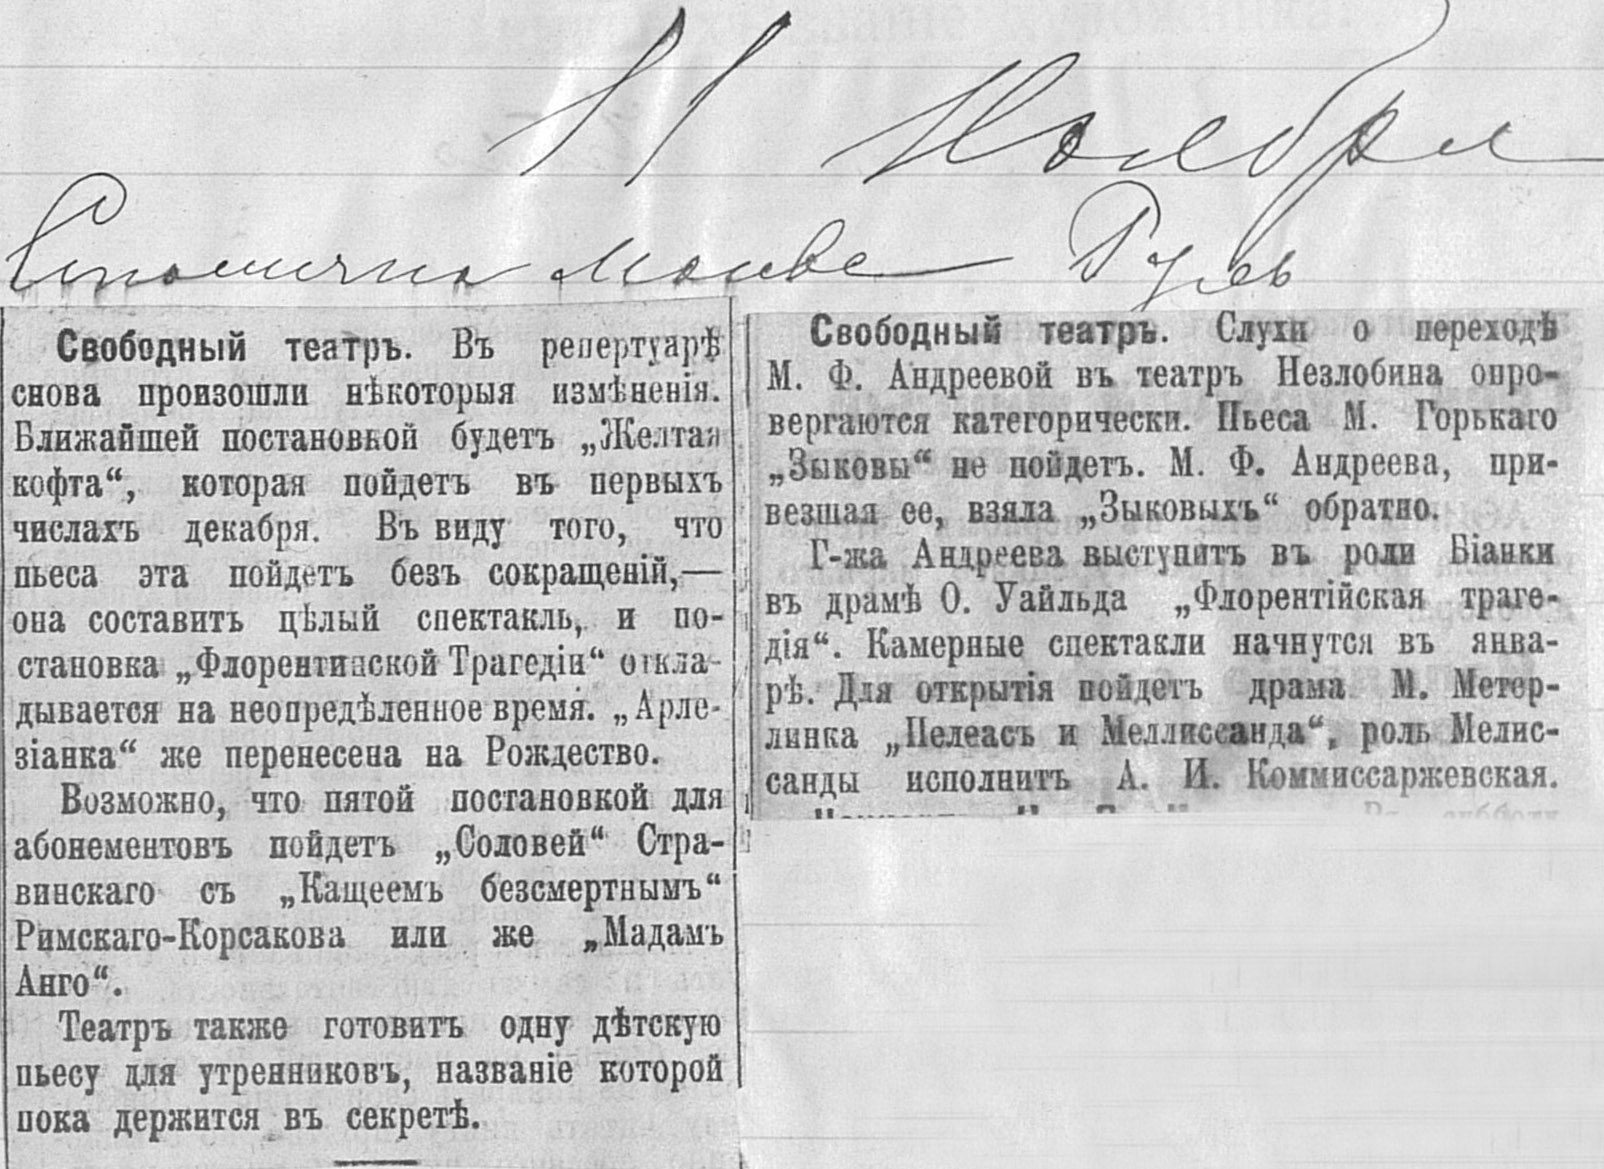 11 Ноября
Столичная Молва Руль
Свободный театръ. Въ репертуарѣ
снова произошли нѣкоторыя измѣненія.
Ближайшей постановкой будетъ „Желтая
кофта“, которая пойдетъ въ первыхъ
числахъ декабря. Въ виду того, что
пьеса эта пойдетъ безъ сокращеній,—
она составитъ цѣлый спектакль, и по-
становка „Флорентинской Трагедіи“ откла-
дывается на неопредѣленное время. „Арле-
зіанка“ же перенесена на Рождество.
Возможно, что пятой постановкой для
абонементовъ пойдетъ „Соловей“ Стра-
винскаго съ „Кащеемъ безсмертнымъ“
Римскаго-Корсакова или же „Мадамъ
Анго“.
Театръ также готовитъ одну дѣтскую
пьесу для утренниковъ, названіе которой
пока держится въ секретѣ.
Свободный театръ. Слухи о переходѣ
М. Ф. Андреевой въ театръ Незлобина опро-
вергаются категорически. Пьеса М. Горькаго
„Зыковы“ не пойдетъ. М. Ф. Андреева, при-
везшая ее, взяла „Зыковыхъ“ обратно.
Г-жа Андреева выступитъ въ роли Біанки
въ драмѣ О. Уайльда „Флорентійская траге-
дія“. Камерные спектакли начнутся въ янва-
рѣ. Для открытія пойдетъ драма М. Метер-
линка „Пелеасъ и Меллиссанда“, роль Мелис-
санды исполнитъ А. И. Коммиссаржевская.